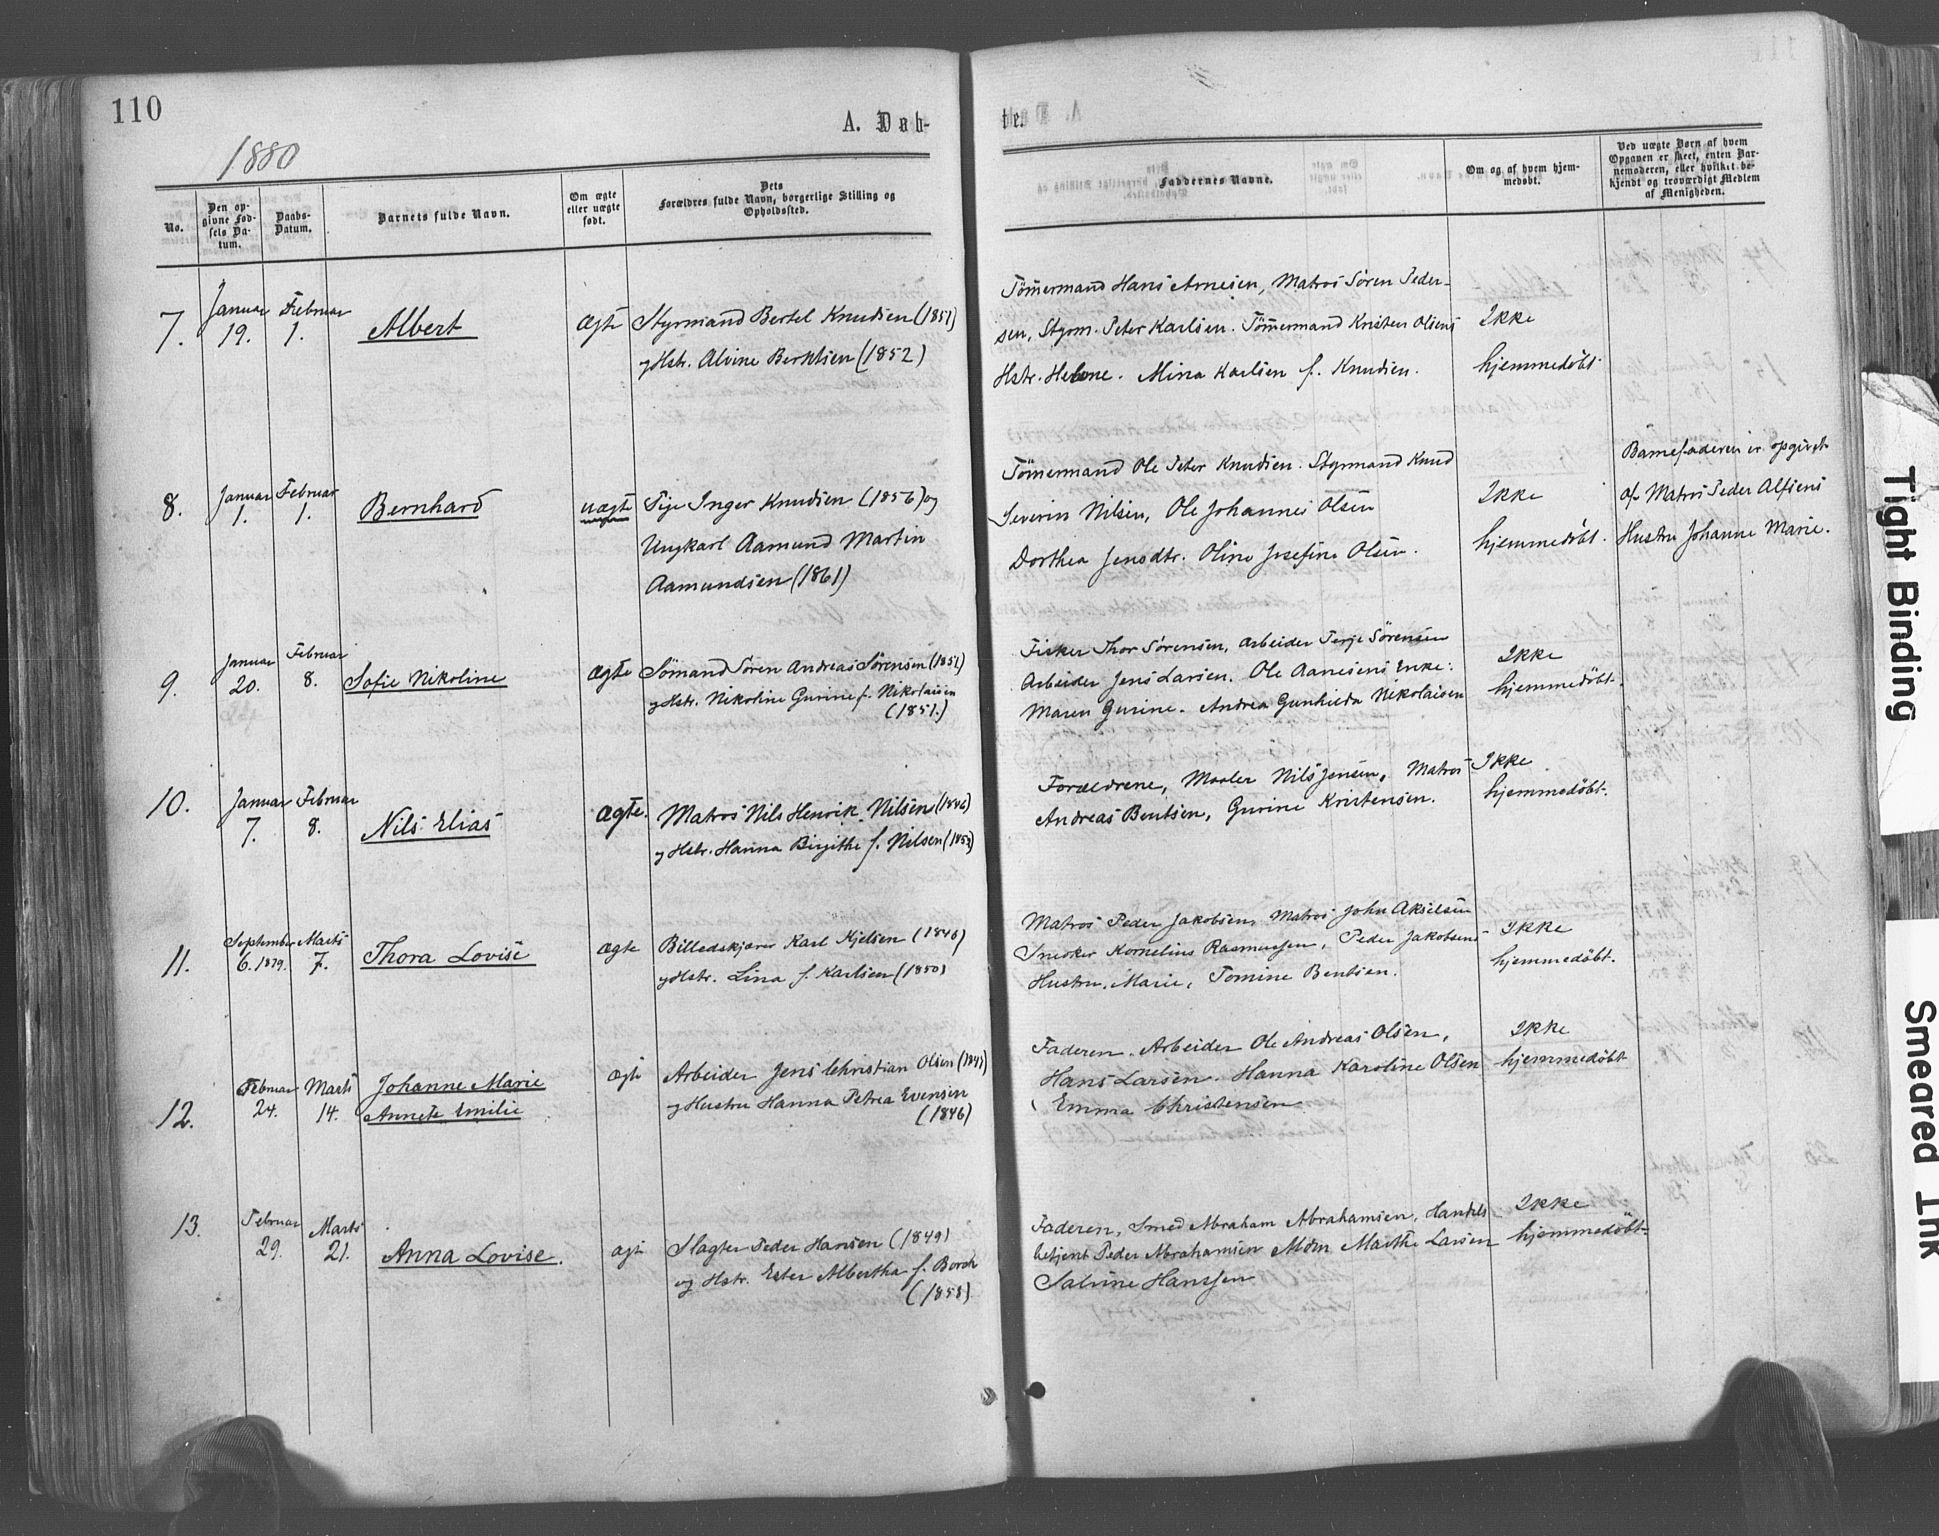 110
1880
A. Døb-
te.
No.
Den op-
givne Fød-
sels Da-
tum.
Daabs-
Datum.
Barnets fulde Navn.
Om ægte
eller uægte
født.
Dets
Forældres fulde Navn, borgerlige Stilling og
Opholdssted.
Faddernes Navne.
Om og af hvem hjem-
medøbt.
Ved uægte Børn af hvem
Opgaven er skeet, enten Bar-
nemoderen, eller hvilket be-
kjendt og troværdigt Medlem
af Menigheden.
7.
Januar
19.
Februar
1.
Albert
Ægte
Styrmand Bertel Knudsen (1851)
og Hstr. Alvine Bertelsen (1852)
Tömermand Hans Arnesen, Matros Sören Peder-
sen, Styrm. Peter Karlsen. Tömermand Kristen Olsens
Hstr. Helene. Mina Karlsen f. Knudsen.
Ikke
hjemmedöbt.
8.
Januar
1.
Februar
1.
Bernhard
uægte
Pige Inger Knudsen (1856) og
Ungkarl Aamund Martin
Aamundsen (1861)
Tömermand Ole Peter Knudsen. Styrmand Knud
Severin Nilsen, Ole Johannes Olsen
Dorthea Jensdtr. Oline Josefine Olsen.
Ikke
hjemmedöbt.
Barnefaderen er opgivet
af Matros Peder Alfsens
Hustru Johanne Marie.
9.
Januar
20.
Februar
8.
Sofie Nikoline
Ægte
Sömand Sören Andreas Sörensen (1852)
og Hstr. Nikoline Gurine f. Nikolaisen
(1851.)
Fisker Thor Sörensen, Arbeider Terje Sörensen
Arbeider Jens Larsen. Ole Aanesens Enke:
Maren Gurine. Andrea Gunhilda Nikolaisen
Ikke
hjemmedöbt.
10.
Januar
7.
Februar
8.
Nils Elias
Ægte.
Matros Nils Henrik Nilsen (1846)
og Hstr. Hanna Birgithe f. Nilsen (1853)
Forældrene, Maaler Nils Jensen, Matros
Andreas Bentsen, Gurine Kristensen.
Ikke
hjemmedöbt.
11.
September
6. 1879.
Marts
7.
Thora Lovise
ægte
Billedskjærer Karl Kjelsen (1846)
og Hstr. Lina f. Karlsen (1850)
Matros Peder Jakobsen, Matros John Akselsen
Snedker Kornelius Rasmussen, Peder Jakobsens
Hustru, Marie, Tomine Bentsen.
Ikke
hjemmedöbt.
12.
Februar
24.
Marts
14.
Johanne Marie
Annete Emilie
ægte
Arbeider Jens Christian Olsen (1841)
og Hustru Hanna Petrea Evensen
(1846)
Faderen. Arbeider Ole Andreas Olsen,
Hans Larsen. Hanna Karoline Olsen
Emma Christensen
Ikke
hjemmedöbt
13.
Februar
29.
Marts
21.
Anna Lovise.
ægte
Slagter Peder Hansen (1849)
og Hstr. Ester Albertha f. Borch
(1858)
Faderen, Smed Abraham Abrahamsen, Handels-
betjent Peder Abrahamsen Mdm Marthe Larsen
Sabine Hanssen
Ikke
hjemmedöbt.
Tight Binding
Smeared Ink